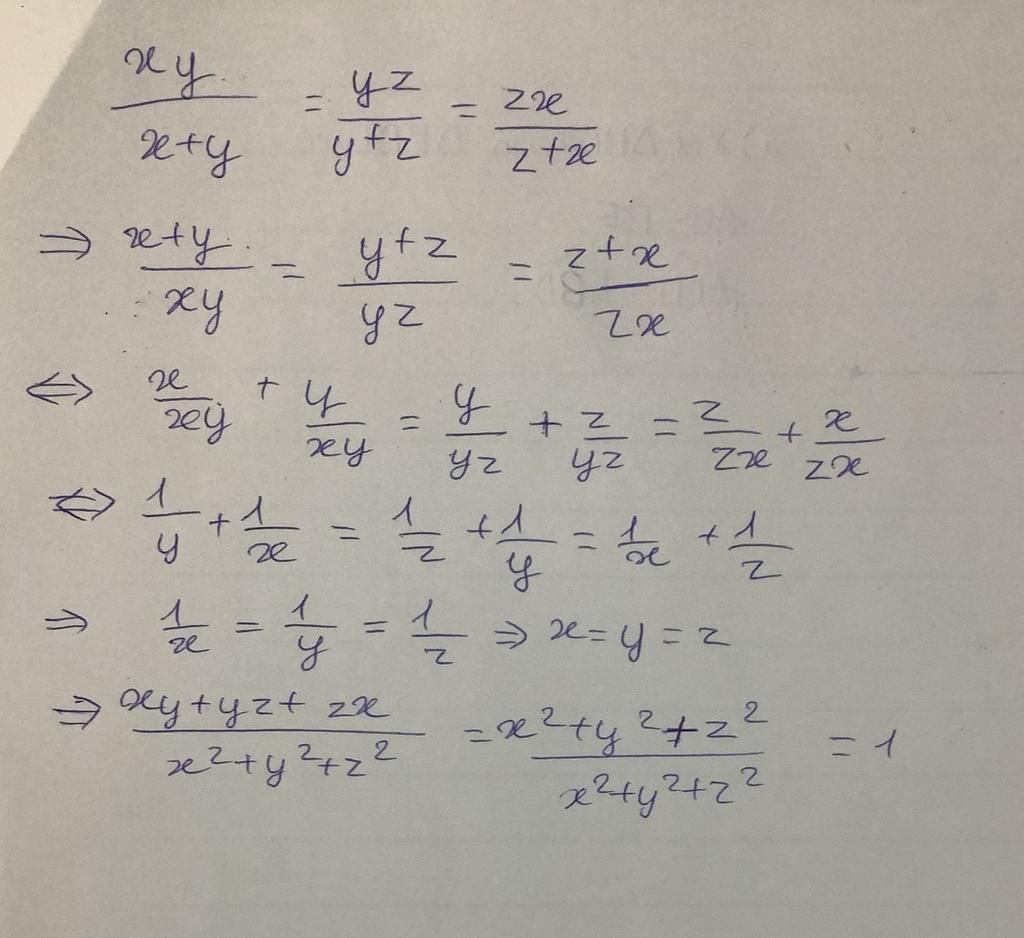 xy/(x+y) = yz/(y+z) = zx/(z+x)
⇒ (x+y)/(xy) = (y+z)/(yz) = (z+x)/(zx)
⇔ x/(xy) + y/(xy) = y/(yz) + z/(yz) = z/(zx) + x/(zx)
⇔ 1/y + 1/x = 1/z + 1/y = 1/x + 1/z
⇒ 1/x = 1/y = 1/z ⇒ x = y = z
⇒ (xy+yz+zx)/(x²+y²+z²) = (x²+y²+z²)/(x²+y²+z²) = 1